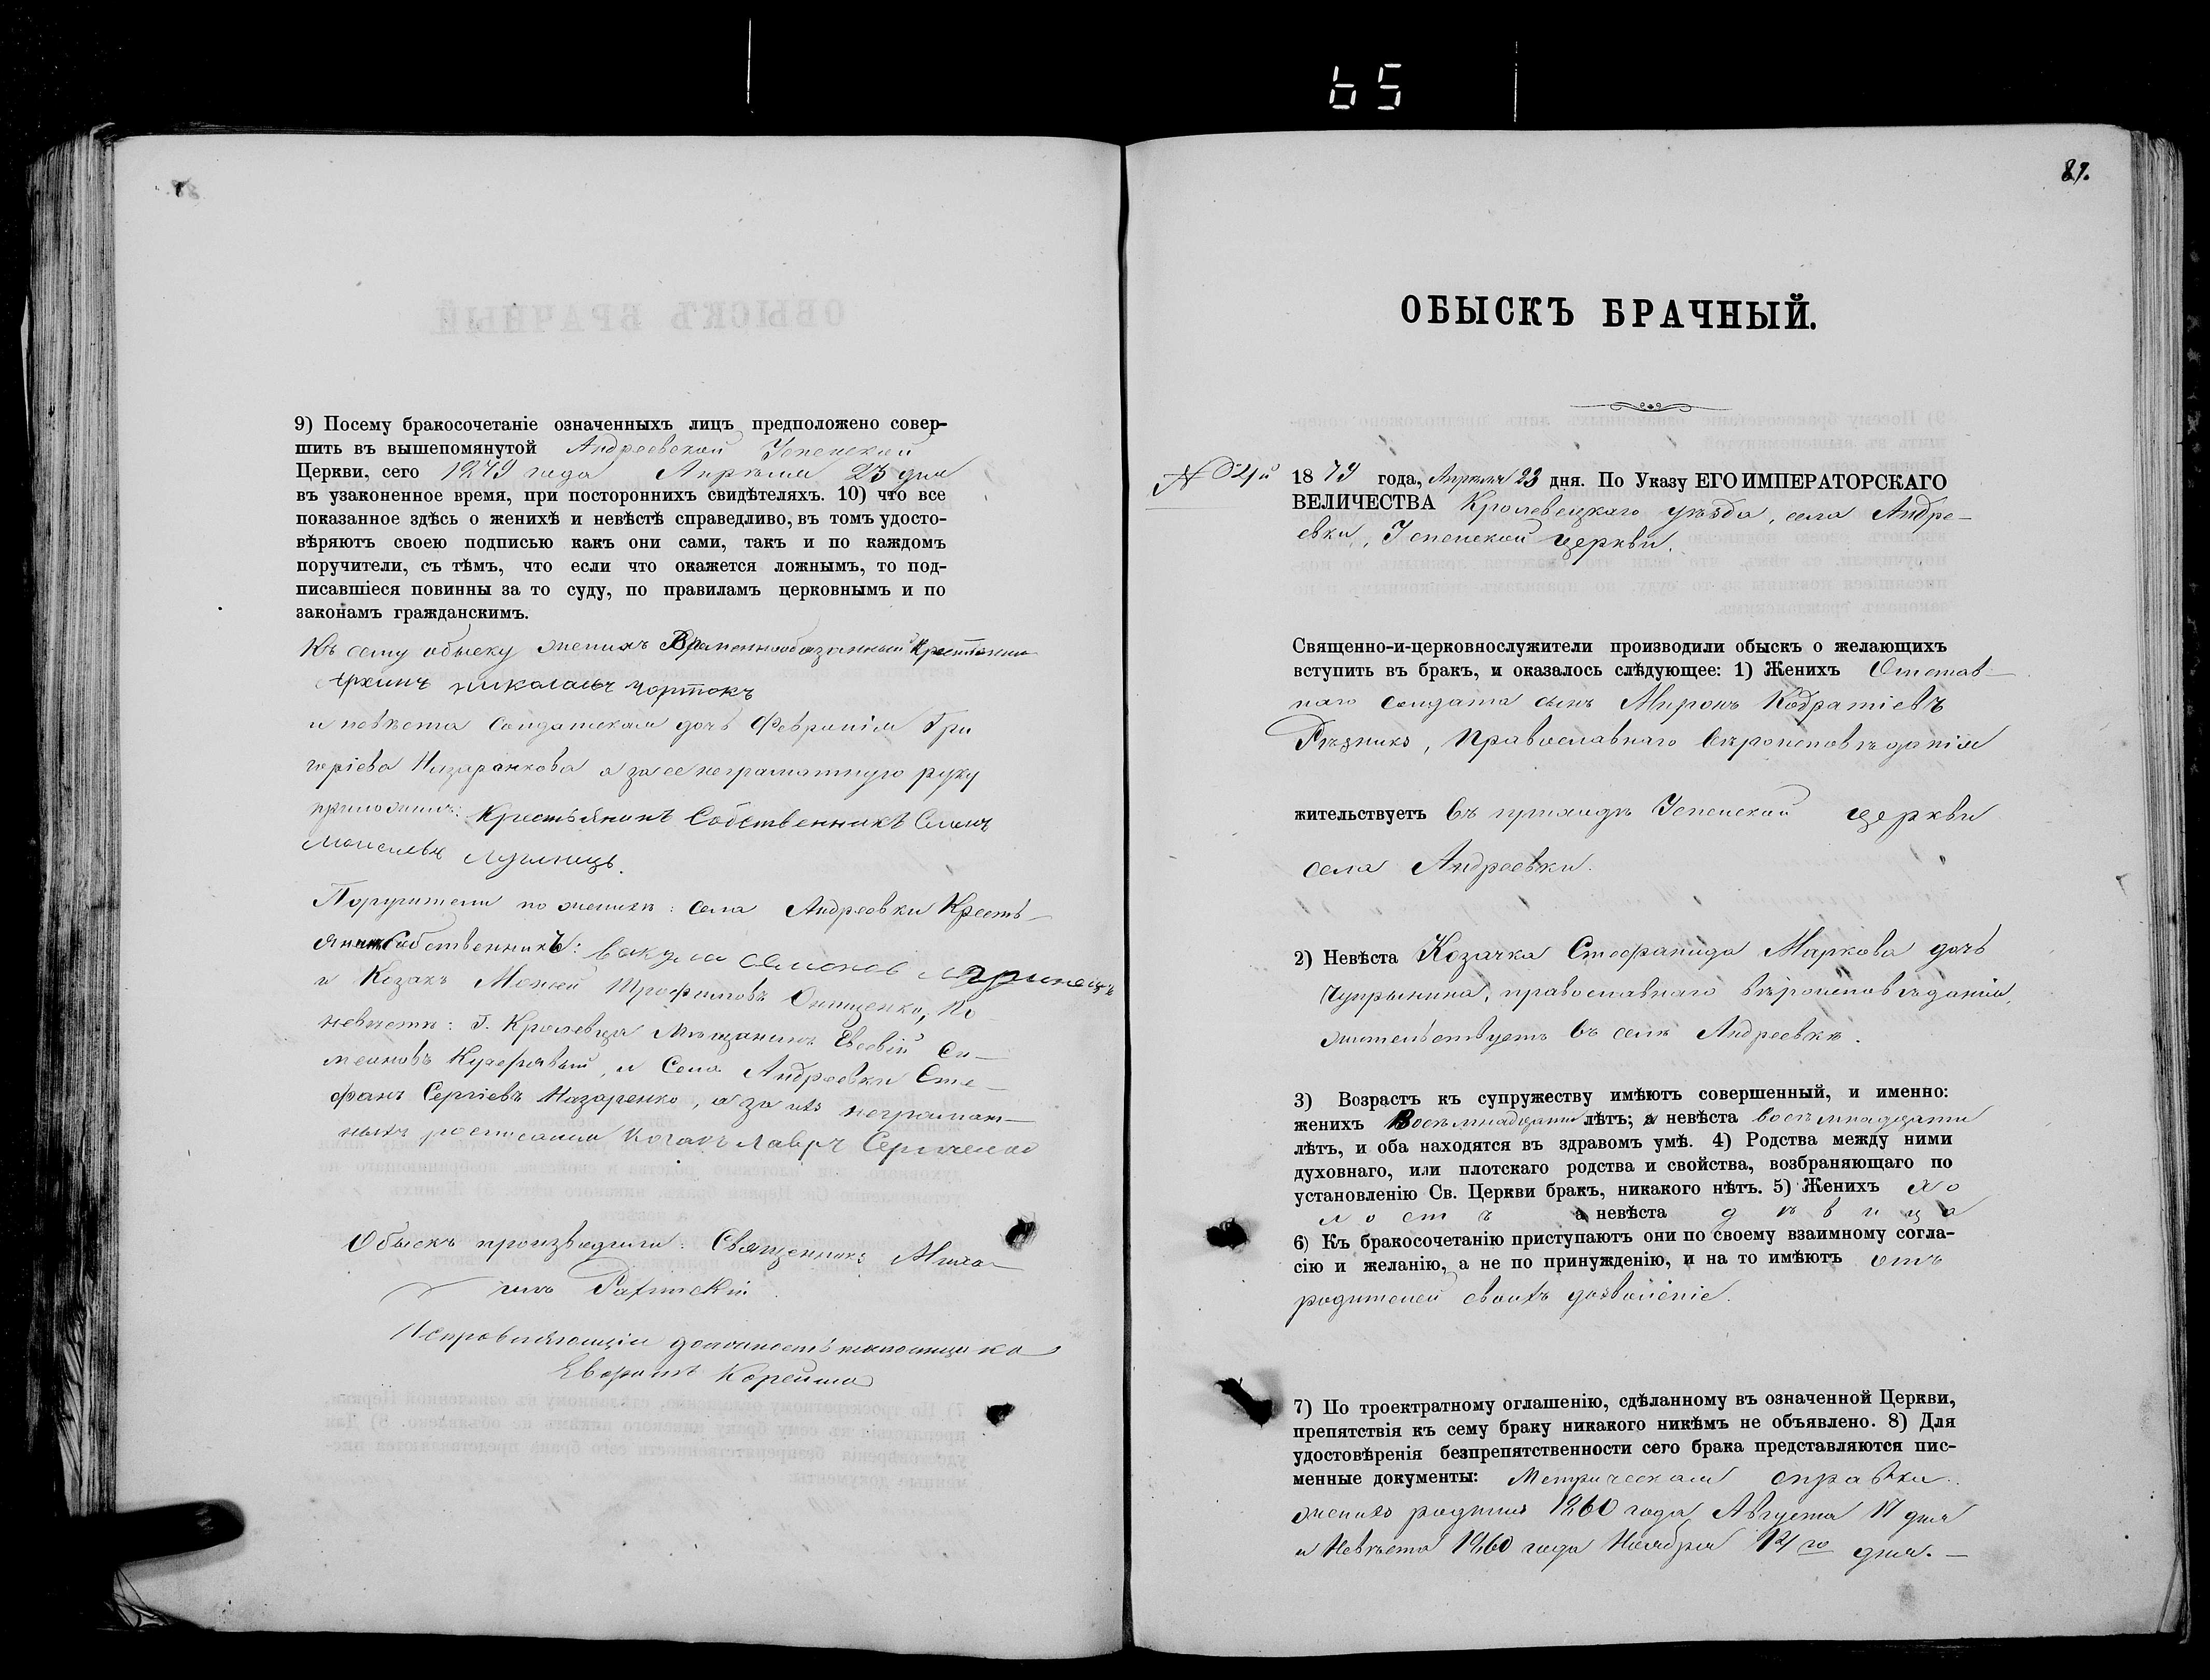 65
9) Посему бракосочетаніе означенныхъ лицъ предположено совер-
шить въ вышепомянутой Андреевской Успенской
Церкви, сего 1879 года Апрѣля 23 дня
въ узаконенное время, при постороннихъ свидѣтеляхъ. 10) что все
показанное здѣсь о женихѣ и невѣстѣ справедливо, въ томъ удосто-
вѣряютъ своею подписью какъ они сами, такъ и по каждомъ
поручители, съ тѣмъ, что если что окажется ложнымъ, то под-
писавшіеся повинны за то суду, по правиламъ церковнымъ и по
законамъ гражданскимъ.
Къ сему обыску женихъ Временнообязанный Крестянин
Архипъ николаевъ чортокъ
и невѣста солдатская дочь Февронія Гри
горіева Назаранкова а за ее неграмотную руку
приложилъ: Крестьянинъ Собственникъ Семенъ
Моисеевъ
Поручители по женихѣ: села Андреевки Кресть-
янинъ Собственникъ: Вакула Семенов
и Козакъ Моисей Трофимовъ Онищенко, По
невѣстѣ: Г. Кролевца Мѣщанинъ Евсевій Си-
меоновъ Кучерявый, и Села Андреевки Сте-
фанъ Сергіевъ Назаренко, а за ихъ неграмот-
ныхъ росписался Козакъ Лавръ Сергиенко
Обыскъ производили: Священникъ Миха-
илъ
Исправляющій должность псаломщика
Евфимъ Корейша
89.
ОБЫСКЪ БРАЧНЫЙ.
18 79 года, Апрѣля 23 дня. По Указу ЕГО ИМПЕРАТОРСКАГО
ВЕЛИЧЕСТВА Кролевецкаго уѣзда, села Андре-
евки, Успенской церкви.
Священно-и-церковнослужители производили обыскъ о желающихъ
вступить въ бракъ, и оказалось слѣдующее: 1) Женихъ Отстав-
наго солдата сынъ Миронъ Кодратіевъ
Рѣзникъ, Православнаго вѣроисповѣданія
жительствуетъ въ приходѣ Успенской церкви
села Андреевки.
2) Невѣста Козачка Стефанида Маркова дочь
Чупрынина, православнаго вѣроисповѣданія,
жительствуетъ въ селѣ Андреевкѣ.
3) Возрастъ къ супружеству имѣютъ совершенный, и именно:
женихъ Восемнадцати лѣтъ; а невѣста восемнадцати
лѣтъ, и оба находятся въ здравомъ умѣ. 4) Родства между ними
духовнаго, или плотскаго родства и свойства, возбраняющаго по
установленію Св. Церкви бракъ, никакого нѣтъ. 5) Женихъ хо
лостъ а невѣста дѣвица
6) Къ бракосочетанію приступаютъ они по своему взаимному согла-
сію и желанію, а не по принужденію, и на то имѣютъ отъ
родителей своихъ дозволеніе.
7) По троектратному оглашенію, сдѣланному въ означенной Церкви,
препятствія къ сему браку никакого никѣмъ не объявлено. 8) Для
удостовѣренія безпрепятственности сего брака представляются пис-
менные документы: Метрическая справки
женихъ родился 1860 года Августа 17 дня
и Невѣста 1860 года Ноября 12 го дня.—